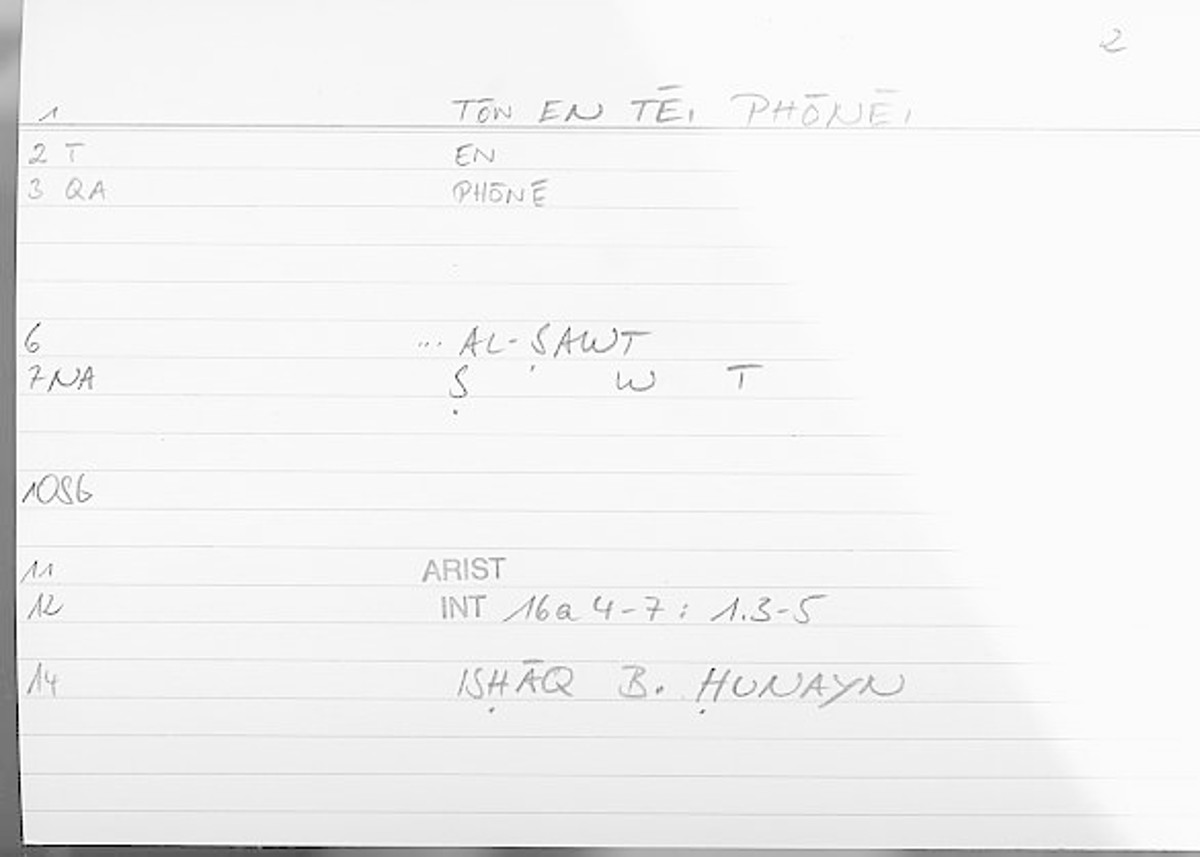 2
1 TŌN EN TĒI PHŌNĒI
2 T EN
3 QA PHŌNĒ
6 ... AL-ṢAWT
7 NA Ṣ W T
10SG
11 ARIST
12 INT 16a 4-7 : 1.3-5
14 ISḤĀQ B. ḤUNAYN